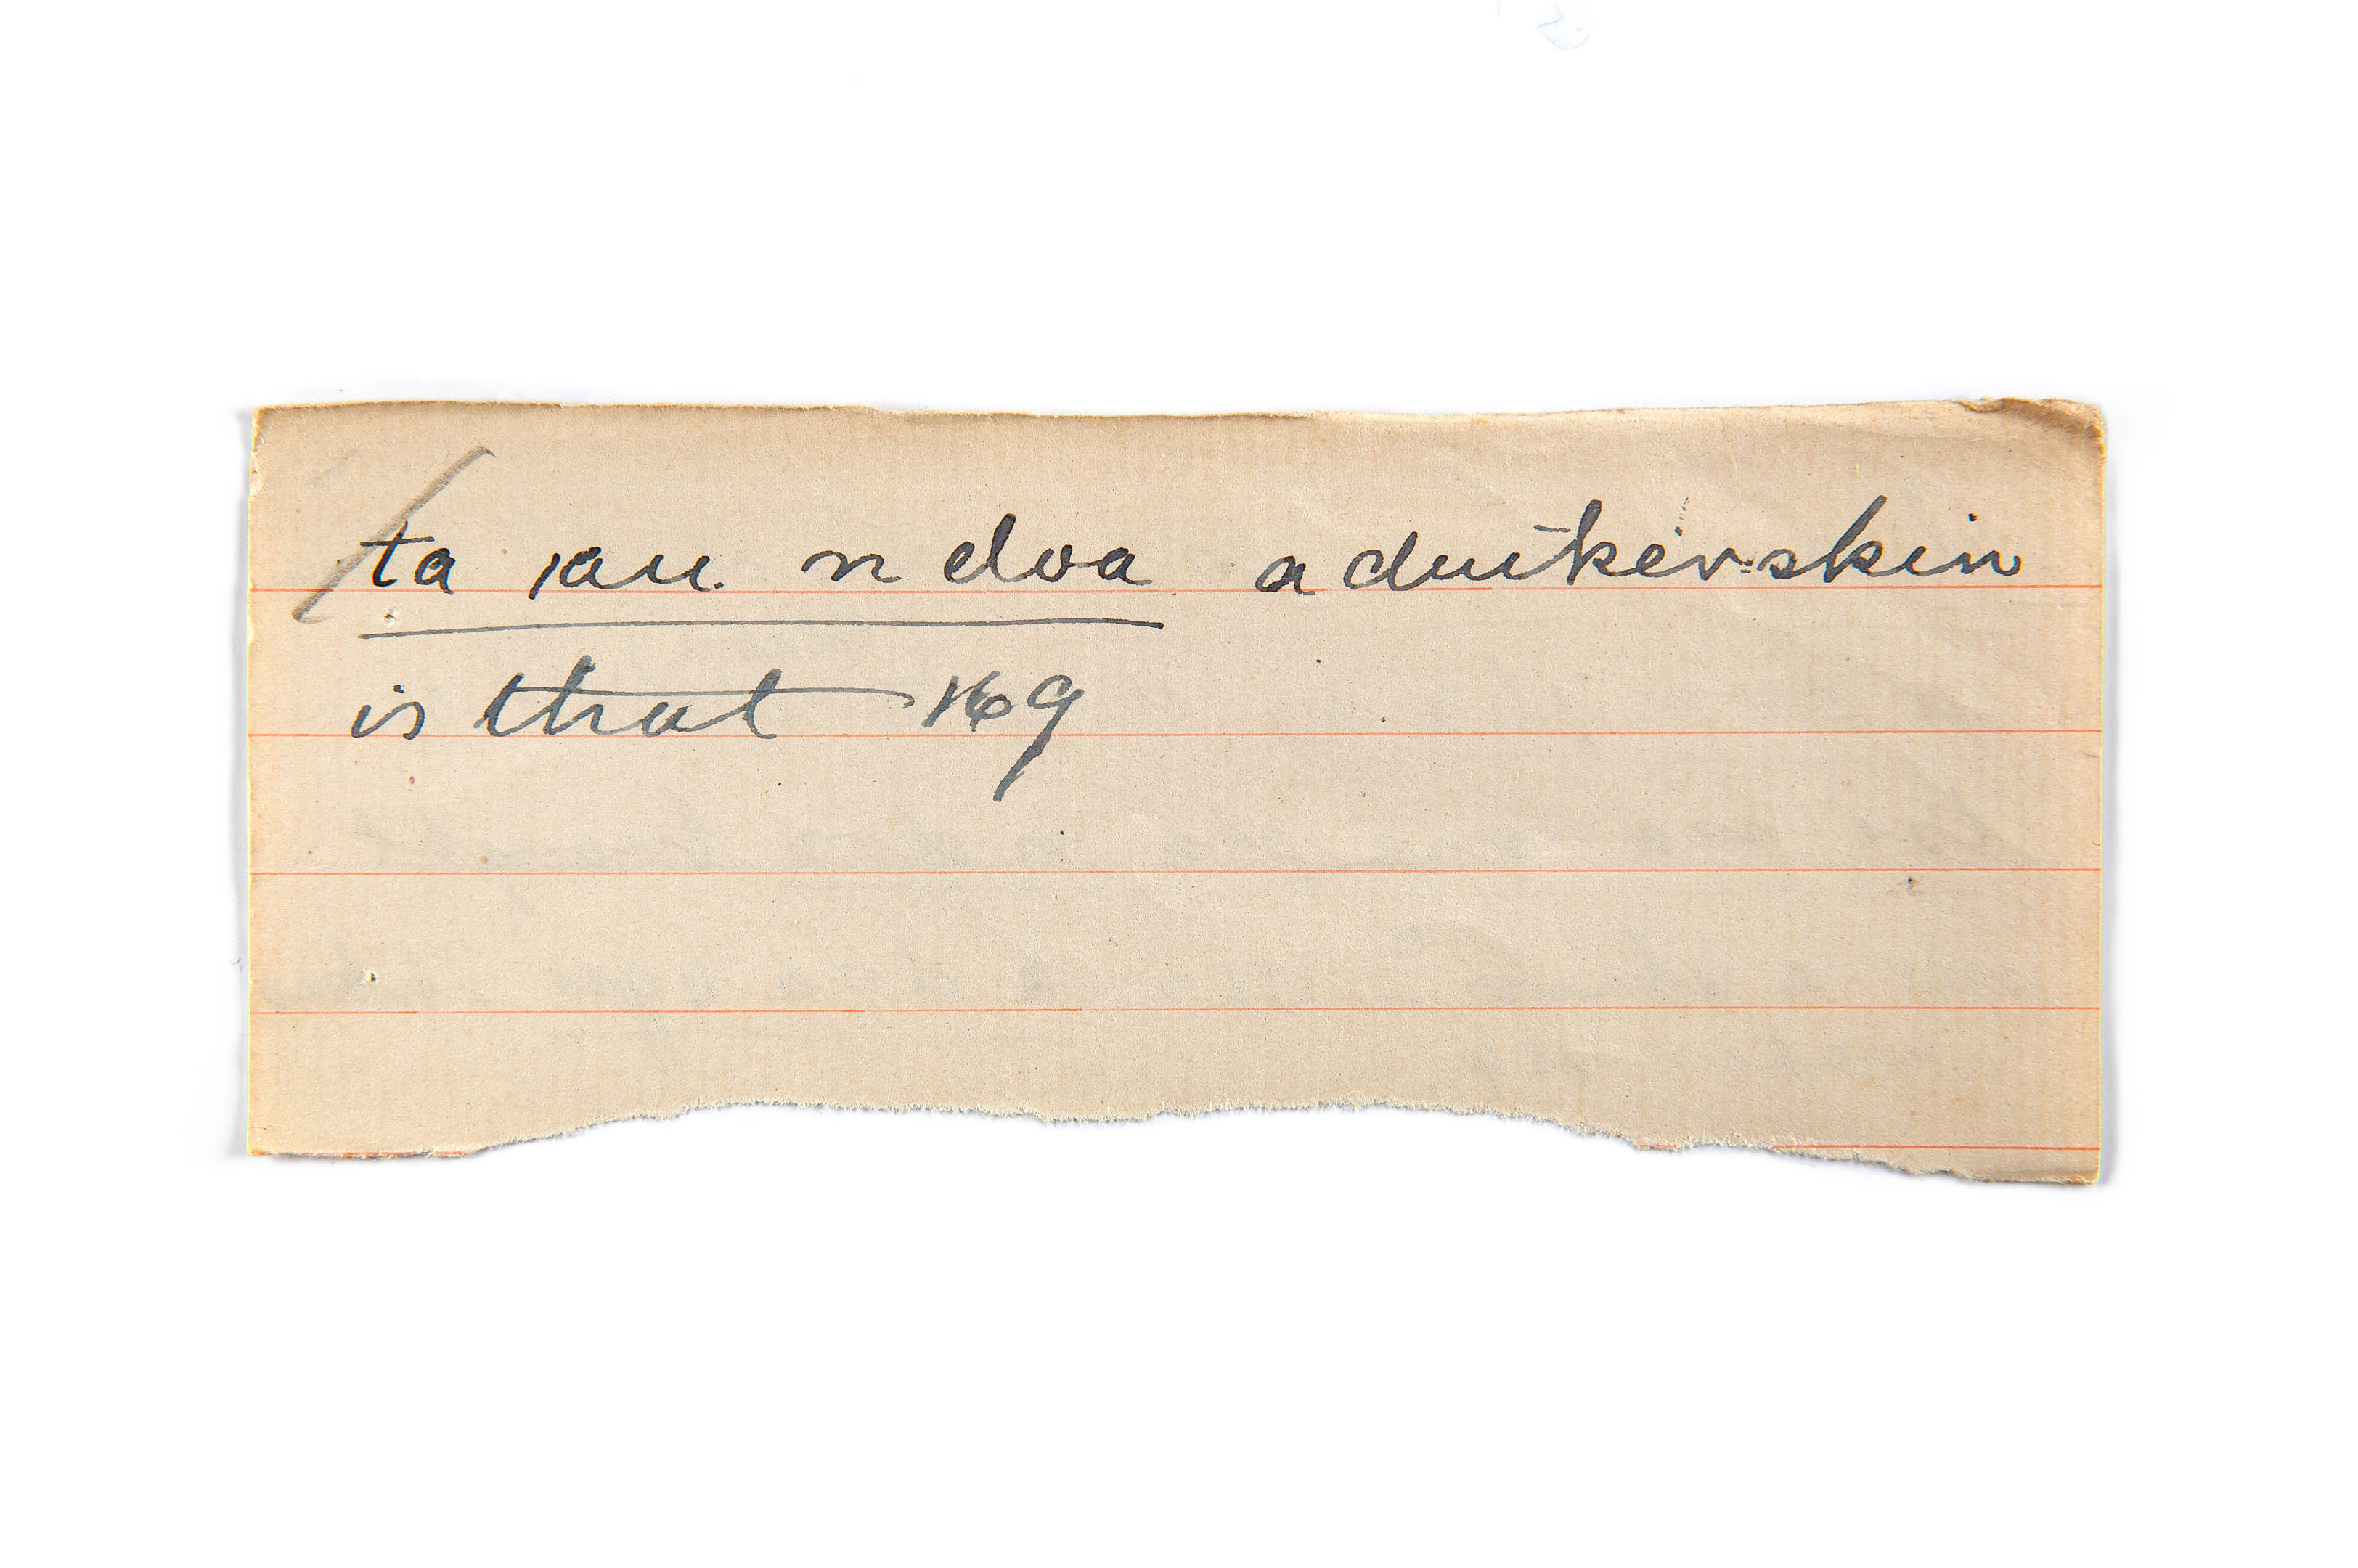 ta ,au. n eloa a duikerskin
is that 169